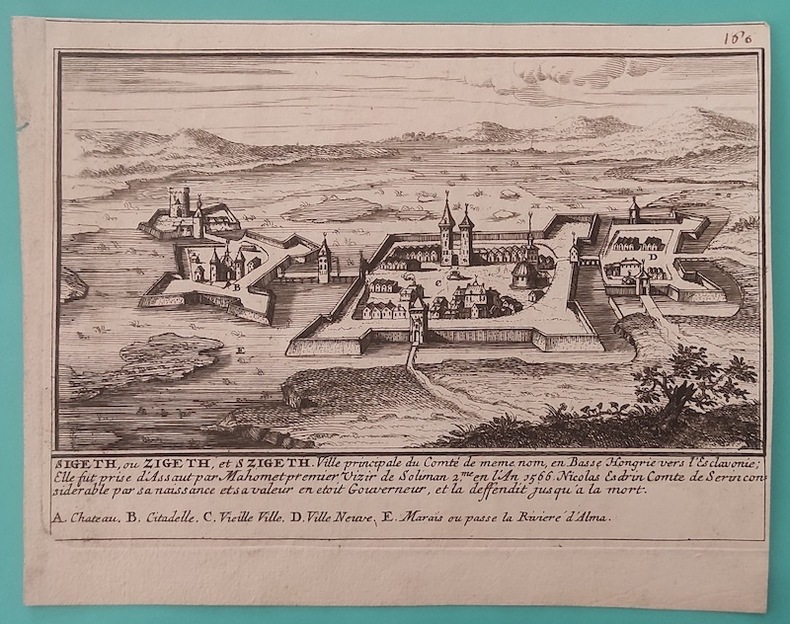 C
D
B
E
SIGETH, ou ZIGETH, et SZIGETH. Ville principale du Comté de meme nom, en Basse Hongrie vers l'Esclavonie;
Elle fut prise d'Assaut par Mahomet premier Vizir de Soliman 2.me en l'An 1566. Nicolas Esdrin Comte de Serin con-
siderable par sa naissance et sa valeur en etoit Gouverneur, et la deffendit jusqu'a la mort.
A. Chateau. B. Citadelle. C. Vieille Ville. D. Ville Neuve. E. Marais ou passe la Riviere d'Alma.